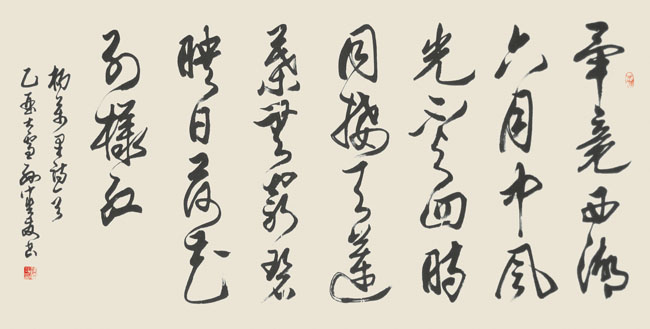 畢竟西湖
六月中風
光不与四時
同接天蓮
葉無窮碧
映日荷花
別樣紅
楊萬里詩一首
大雪 書